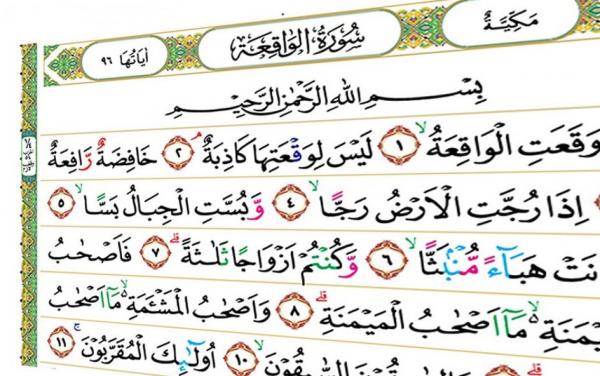 مَكِيَّةٌ
سُورَةُ الْوَاقِعَةِ
اٰيَاتُهَا ٩٦
بِسْمِ اللهِ الرَّحْمٰنِ الرَّحِيمِ
وَقَعَتِ الْوَاقِعَةُۙ ﴿١﴾ لَيْسَ لِوَقْعَتِهَا كَاذِبَةٌۢ ﴿٢﴾ خَافِضَةٌ رَّافِعَةٌ
اِذَا رُجَّتِ الْاَرْضُ رَجًّاۙ ﴿٤﴾ وَّبُسَّتِ الْجِبَالُ بَسًّاۙ ﴿٥﴾
هَبَآءً مُّنْبَثًّاۙ ﴿٦﴾ وَّكُنْتُمْ اَزْوَاجًا ثَلٰثَةًؕ ﴿٧﴾ فَاَصْحٰبُ
مَآ اَصْحٰبُ الْمَيْمَنَةِؕ ﴿٨﴾ وَاَصْحٰبُ الْمَشْـَٔمَةِ مَآ اَصْحٰبُ
﴿١٠﴾ اُولٰٓئِكَ الْمُقَرَّبُونَۚ ﴿١١﴾